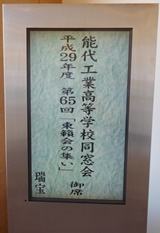 能代工業高等学校同窓会
平成29年度 第65回「東籟会の集い」
御席
瑞宝